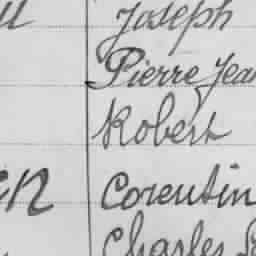 Joseph
Pierre Jean
Robert
Corentin
Charles